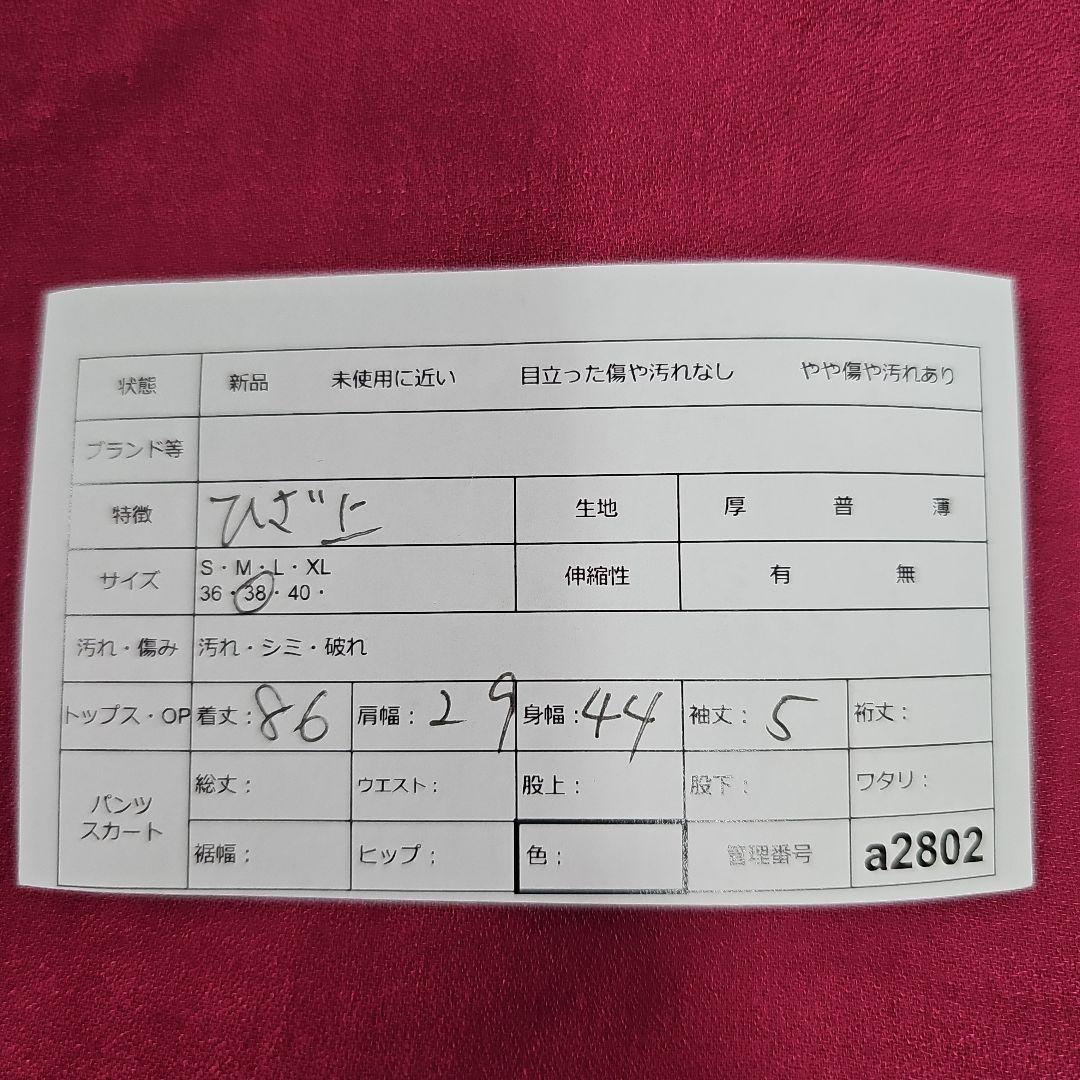 状態 新品 未使用に近い 目立った傷や汚れなし やや傷や汚れあり
ブランド等
特徴 ひざ上 生地 厚 普 薄
サイズ S・M・L・XL
36・38・40・
伸縮性 有 無
汚れ・傷み 汚れ・シミ・破れ
トップス・OP 着丈:86 肩幅:29 身幅:44 袖丈:5 裄丈:
パンツ
スカート
総丈: ウエスト: 股上: 股下: ワタリ:
裾幅: ヒップ: 色: 管理番号 a2802